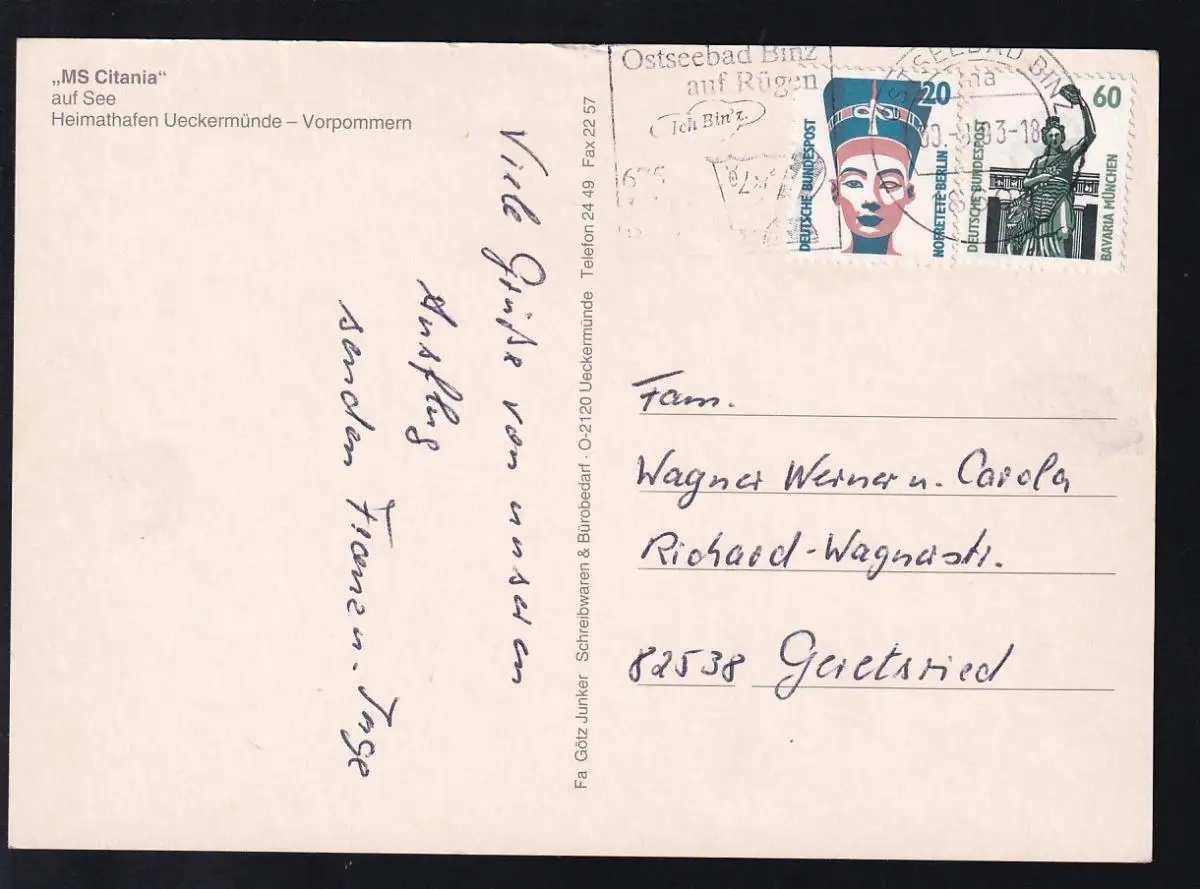 „MS Citania“
auf See
Heimathafen Ueckermünde – Vorpommern
Viele Grüße von unseren
Ausflug
senden Franz u. Inge
Fa Götz Junker Schreibwaren & Bürobedarf · O-2120 Ueckermünde Telefon 24 49 Fax 22 57
Ostseebad Binz
auf Rügen
Ich Bin'z.
OSTSEEBAD BINZ
20
DEUTSCHE BUNDESPOST
NOFRETETE·BERLIN
60
DEUTSCHE BUNDESPOST
BAVARIA MÜNCHEN
Fam.
Wagner Werner u. Carola
Richard-Wagnerstr.
82538 Geretsried